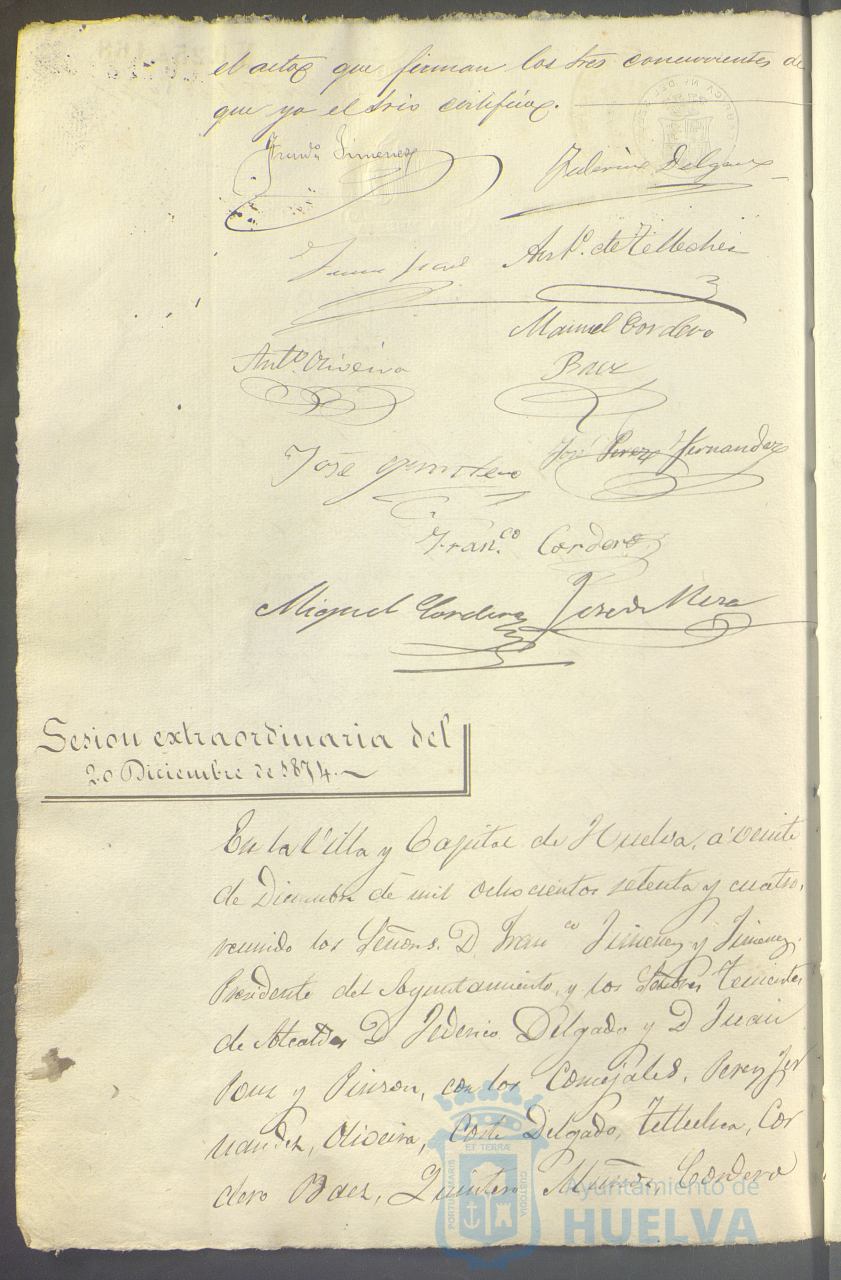 el acto que firman los tres concurrentes de
que yo el Srio certifico.
Jimenez
Federico Delgado
Juan
Ant.º de Tellechea
Manuel Cordero
Baez
Ant.º Oliveira
José Quintero
José Perez Fernandez
Fran.co Cordero
Miguel Cordero
José de Mesa
Sesion extraordinaria del
20 Diciembre de 1874.
En la Villa y Capital de Huelva, a veinte
de Diciembre de mil ochocientos setenta y cuatro,
reunido los Señors. D. Fran co Jimenez y Jimenez,
Presidente del Ayuntamiento, y los Señores Tenientes
de Alcaldes D Federico Delgado y D Juan
y Pinzon, con los Concejales, Perez Fer
nandez, Oliveira, Corte Delgado, Tellechea, Cor
dero Baez, Quintero Muñoz, Cordero
ET TERRÆ
PORTUS MARIS
CUSTODIA
Ayuntamiento de
HUELVA